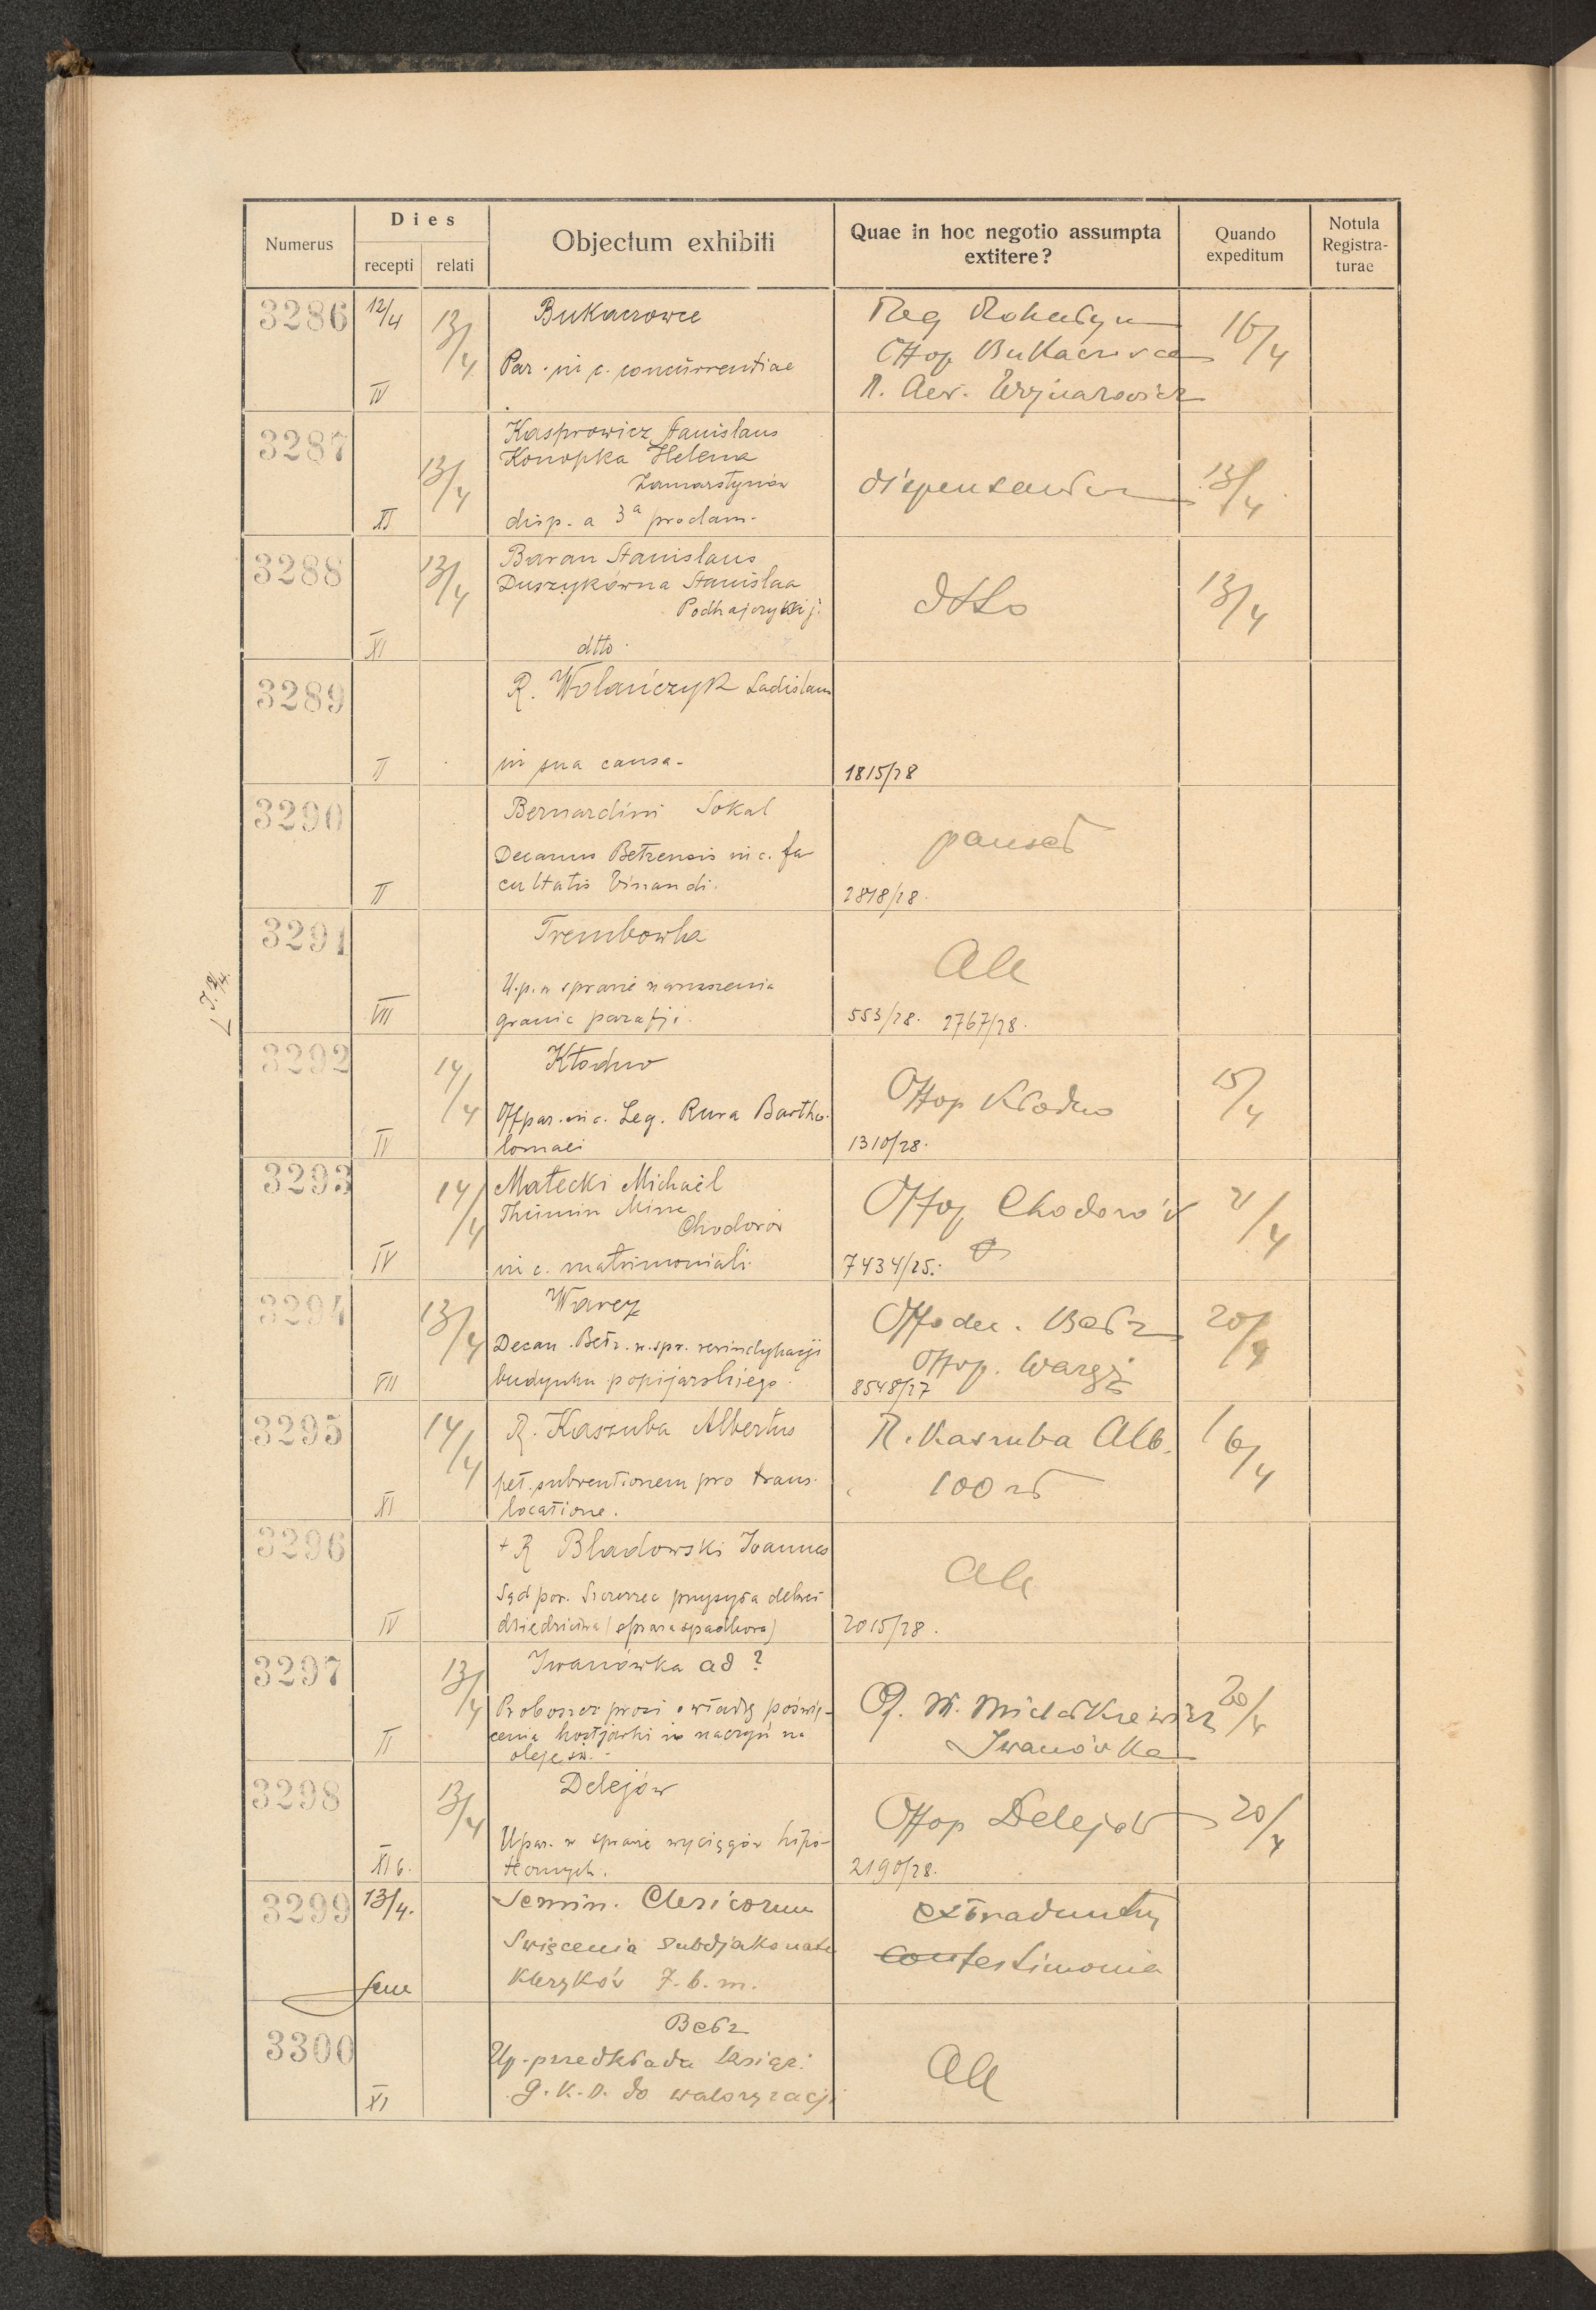 Numerus
Dies
recepti relati
Objectum exhibiti
Quae in hoc negotio assumpta
extitere?
Quando
expeditum
Notula
Registra-
turae
3286 12/4 13/4 IV
Bukaczowce
Par. in c. concurrentiae
Reg Rohatyn
Offop Bukaczowce
R. Aer.
16/4
3287 13/4 XI
Kasprowicz Stanislaus
Konopka Helena
Zamarstynów
disp. a 3a proclam.
dispensantur
13/4
3288 13/4 XI
Baran Stanislaus
Duszykówna Stanislaa
dtto.
dtto
13/4
3289 II
R. Wolańczyk Ladislaus
in sua causa.
1815/28
3290 II
Bernardini Sokal
Decanus Bełzensis in c. fa
cultatis binandi.
2818/28.
3291 VII
Trembowla
U.p. w sprawie naruszenia
granic parafji.
All
553/28. 2767/28.
3292 14/4 IV
Kłodno
Offpar. in c. Leg. Rura Bartho-
lomaei
Offop Kłodno
1310/28.
15/4
3293 14/4 IV
Małecki Michaël
Chodorów
in c. matrimoniali.
Offop Chodorów
7434/25.
21/4
3294 13/4 VII
Warez
Decan. Bełz. w spr. rewindykacji
budynku popijarskiego.
Offodec. Bełz
Offop. Waręż
8548/27
20/4
3295 14/4 XI
R. Kaszuba Albertus
pet. subventionem pro trans-
locatione.
R. Kaszuba Alb.
100 zł
16/4
3296 IV
+ R Bladowski Joannes
Sąd pow. Szczerzec przysyła dekret
dziedzictwa (sprawa spadkowa)
All
2015/28.
3297 13/4 II
Iwanówka ad ?
Proboszcz prosi o władzę poświę-
cenia kustjarki i naczyń na
oleje św.
Iwanówka
20/4
3298 13/4 XI b.
Delejów
Upar. w sprawie wyciągów hipo-
tecznych.
Offop Delejów
2190/28.
20/4
3299 13/4.
Semin. Clericorum
Święcenia subdjakonatu
Kleryków 7. b. m.
extraduntur
testimonia
3300 XI
Bełz
Up. przedkłada książ.
G. K. O. do waloryzacji
All